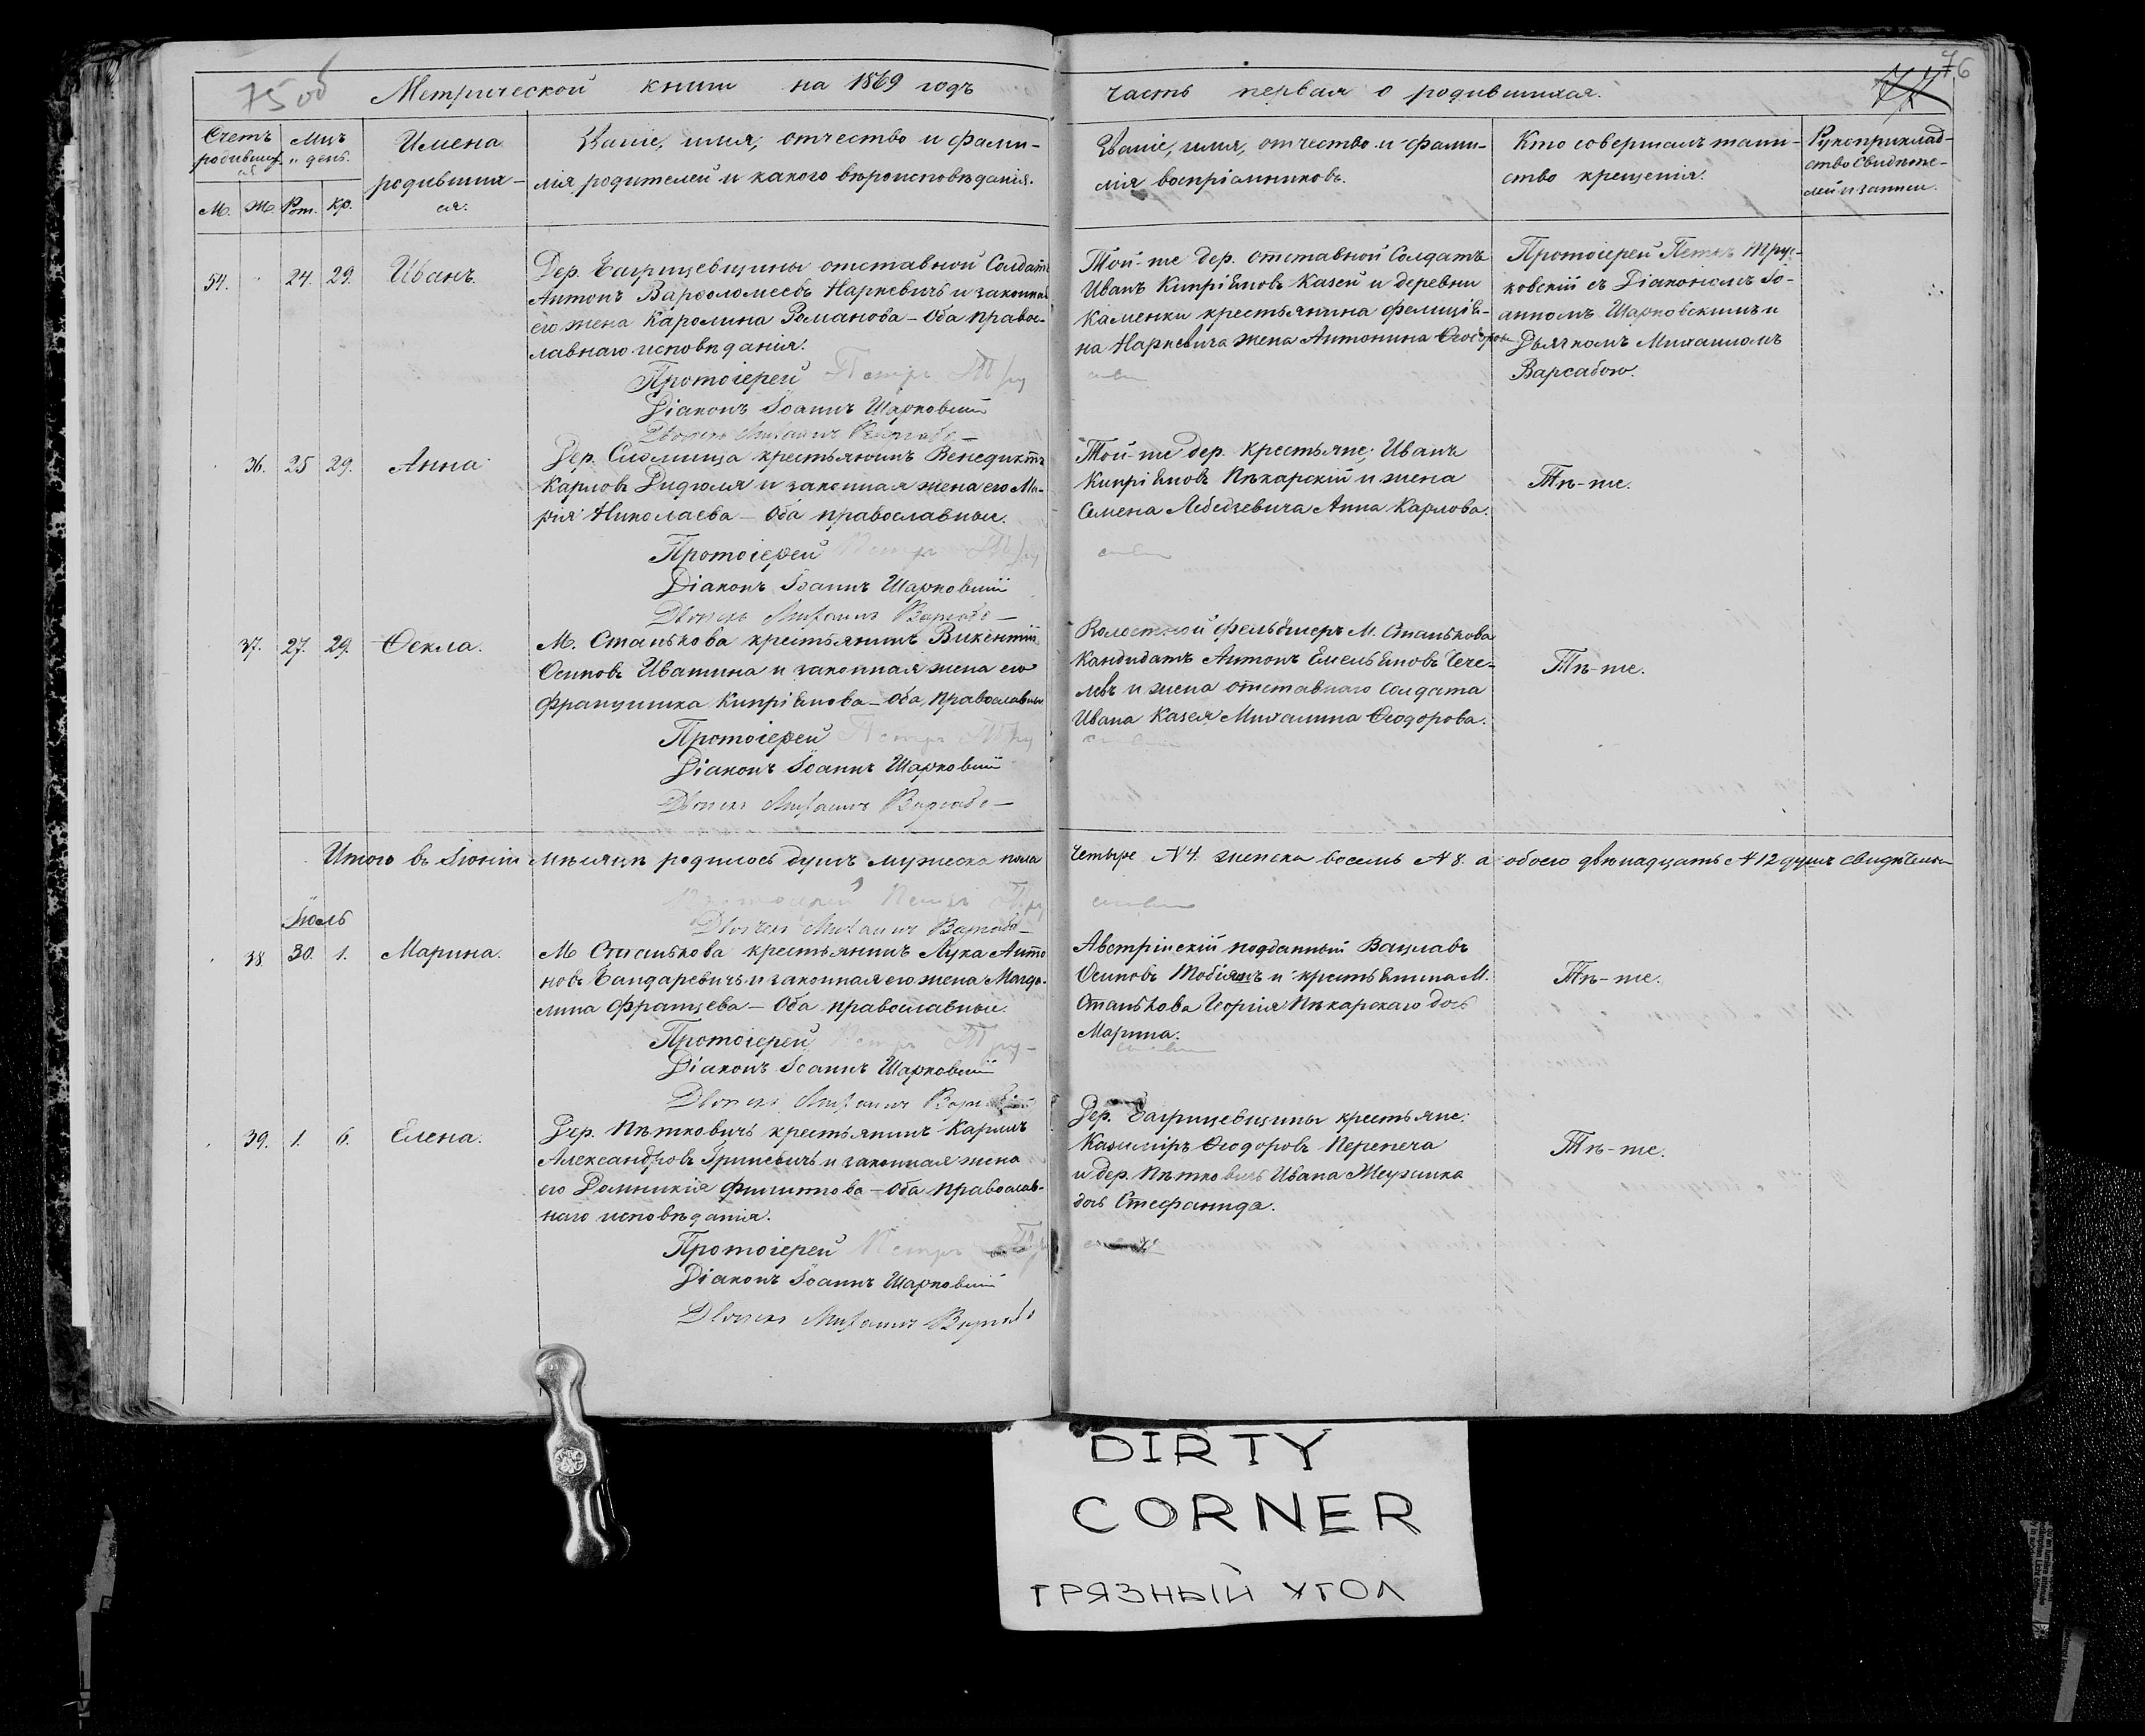 75 об
76
Метрической книги на 1869 годъ
часть первая о родившихся.
Счетъ родившихся
М. Ж.
Мцъ и день.
Рож. Кр.
Имена
родивших-
ся.
Званіе, имя, отчество и фами-
лія родителей и какого вѣроисповѣданія.
Званіе, имя, отчество и фами-
лія воспріемниковъ.
Кто совершалъ таин-
ство крещенія.
Рукоприклад-
ство свидѣте-
лей и записи.
54. 24. 29. Иванъ.
Дер. Багрицевщины отставной Солдатъ
Антонъ Варфоломеевъ Наркевичъ и законная
его жена Каролина Романова – Оба правос-
лавнаго исповѣданія.
Протоіерей Петръ
Діаконъ Іоаннъ Шарковскій
Михаилъ Варсаба
Той-же дер. отставной Солдатъ
Иванъ Кипріяновъ Казей и деревни
Каменки крестьянина Фелиціа-
на Наркевича жена Антонина Ѳеодорова
Протоіерей Петръ
ковскій съ Діакономъ Іо-
анномъ Шарковскимъ и
Дьячкомъ Михаиломъ
Варсабою.
36. 25 29. Анна
Дер. крестьянинъ Венедиктъ
Карловъ и законная жена его Ма-
рія Николаева – Оба православные.
Протоіерей Петръ
Діаконъ Іоаннъ Шарковскій
Михаилъ Варсаба
Той-же дер. крестьяне: Иванъ
Кипріяновъ Пѣкарскій и жена
Семена Лебедзевича Анна Карлова.
Тѣ-же.
37. 27. 29. Ѳекла.
М. Станькова крестьянинъ Викентій
Осиповъ Ивашина и законная жена его
Францишка Кипріянова – Оба православные
Протоіерей Петръ
Діаконъ Іоаннъ Шарковскій
Михаилъ Варсаба
Волостной фельдшеръ М. Станькова
Кандидатъ Антонъ Емельяновъ Чече-
левъ и жена отставнаго солдата
Ивана Казея Михалина Ѳеодорова.
Тѣ-же.
Итого въ Іюнѣ мѣсяцѣ родилось душъ мужеска пола
четыре № 4. женска восемь № 8. а обоего двѣнадцать № 12 душъ
Протоіерей Петръ
Михаилъ Варсаба
Іюль
38. 30. 1. Марина.
М. Станькова крестьянинъ Лука Анто
новъ Бандаревичъ и законная его жена Магда-
лина Францева – Оба православные.
Протоіерей Петръ
Діаконъ Іоаннъ Шарковскій
Михаилъ
Австрійскій подданный Вацлавъ
Осиповъ Тобіяшъ и крестьянина М.
Станькова Георгія Пѣкарскаго дочь
Марина.
Тѣ-же.
39. 1. 6. Елена.
Дер. Пѣтковичъ крестьянинъ Карлъ
Александровъ Гриневичъ и законная жена
его Доминикія Филипова – Оба православ-
наго исповѣданія.
Протоіерей Петръ
Діаконъ Іоаннъ Шарковскій
Михаилъ Варсаба
Дер. Багрицевщины крестьяне:
Казиміръ Ѳеодоровъ Перепеча
и дер. Пѣтковичъ Ивана
дочь Стефанида.
Тѣ-же.
DIRTY
CORNER
ГРЯЗНЫЙ УГОЛ